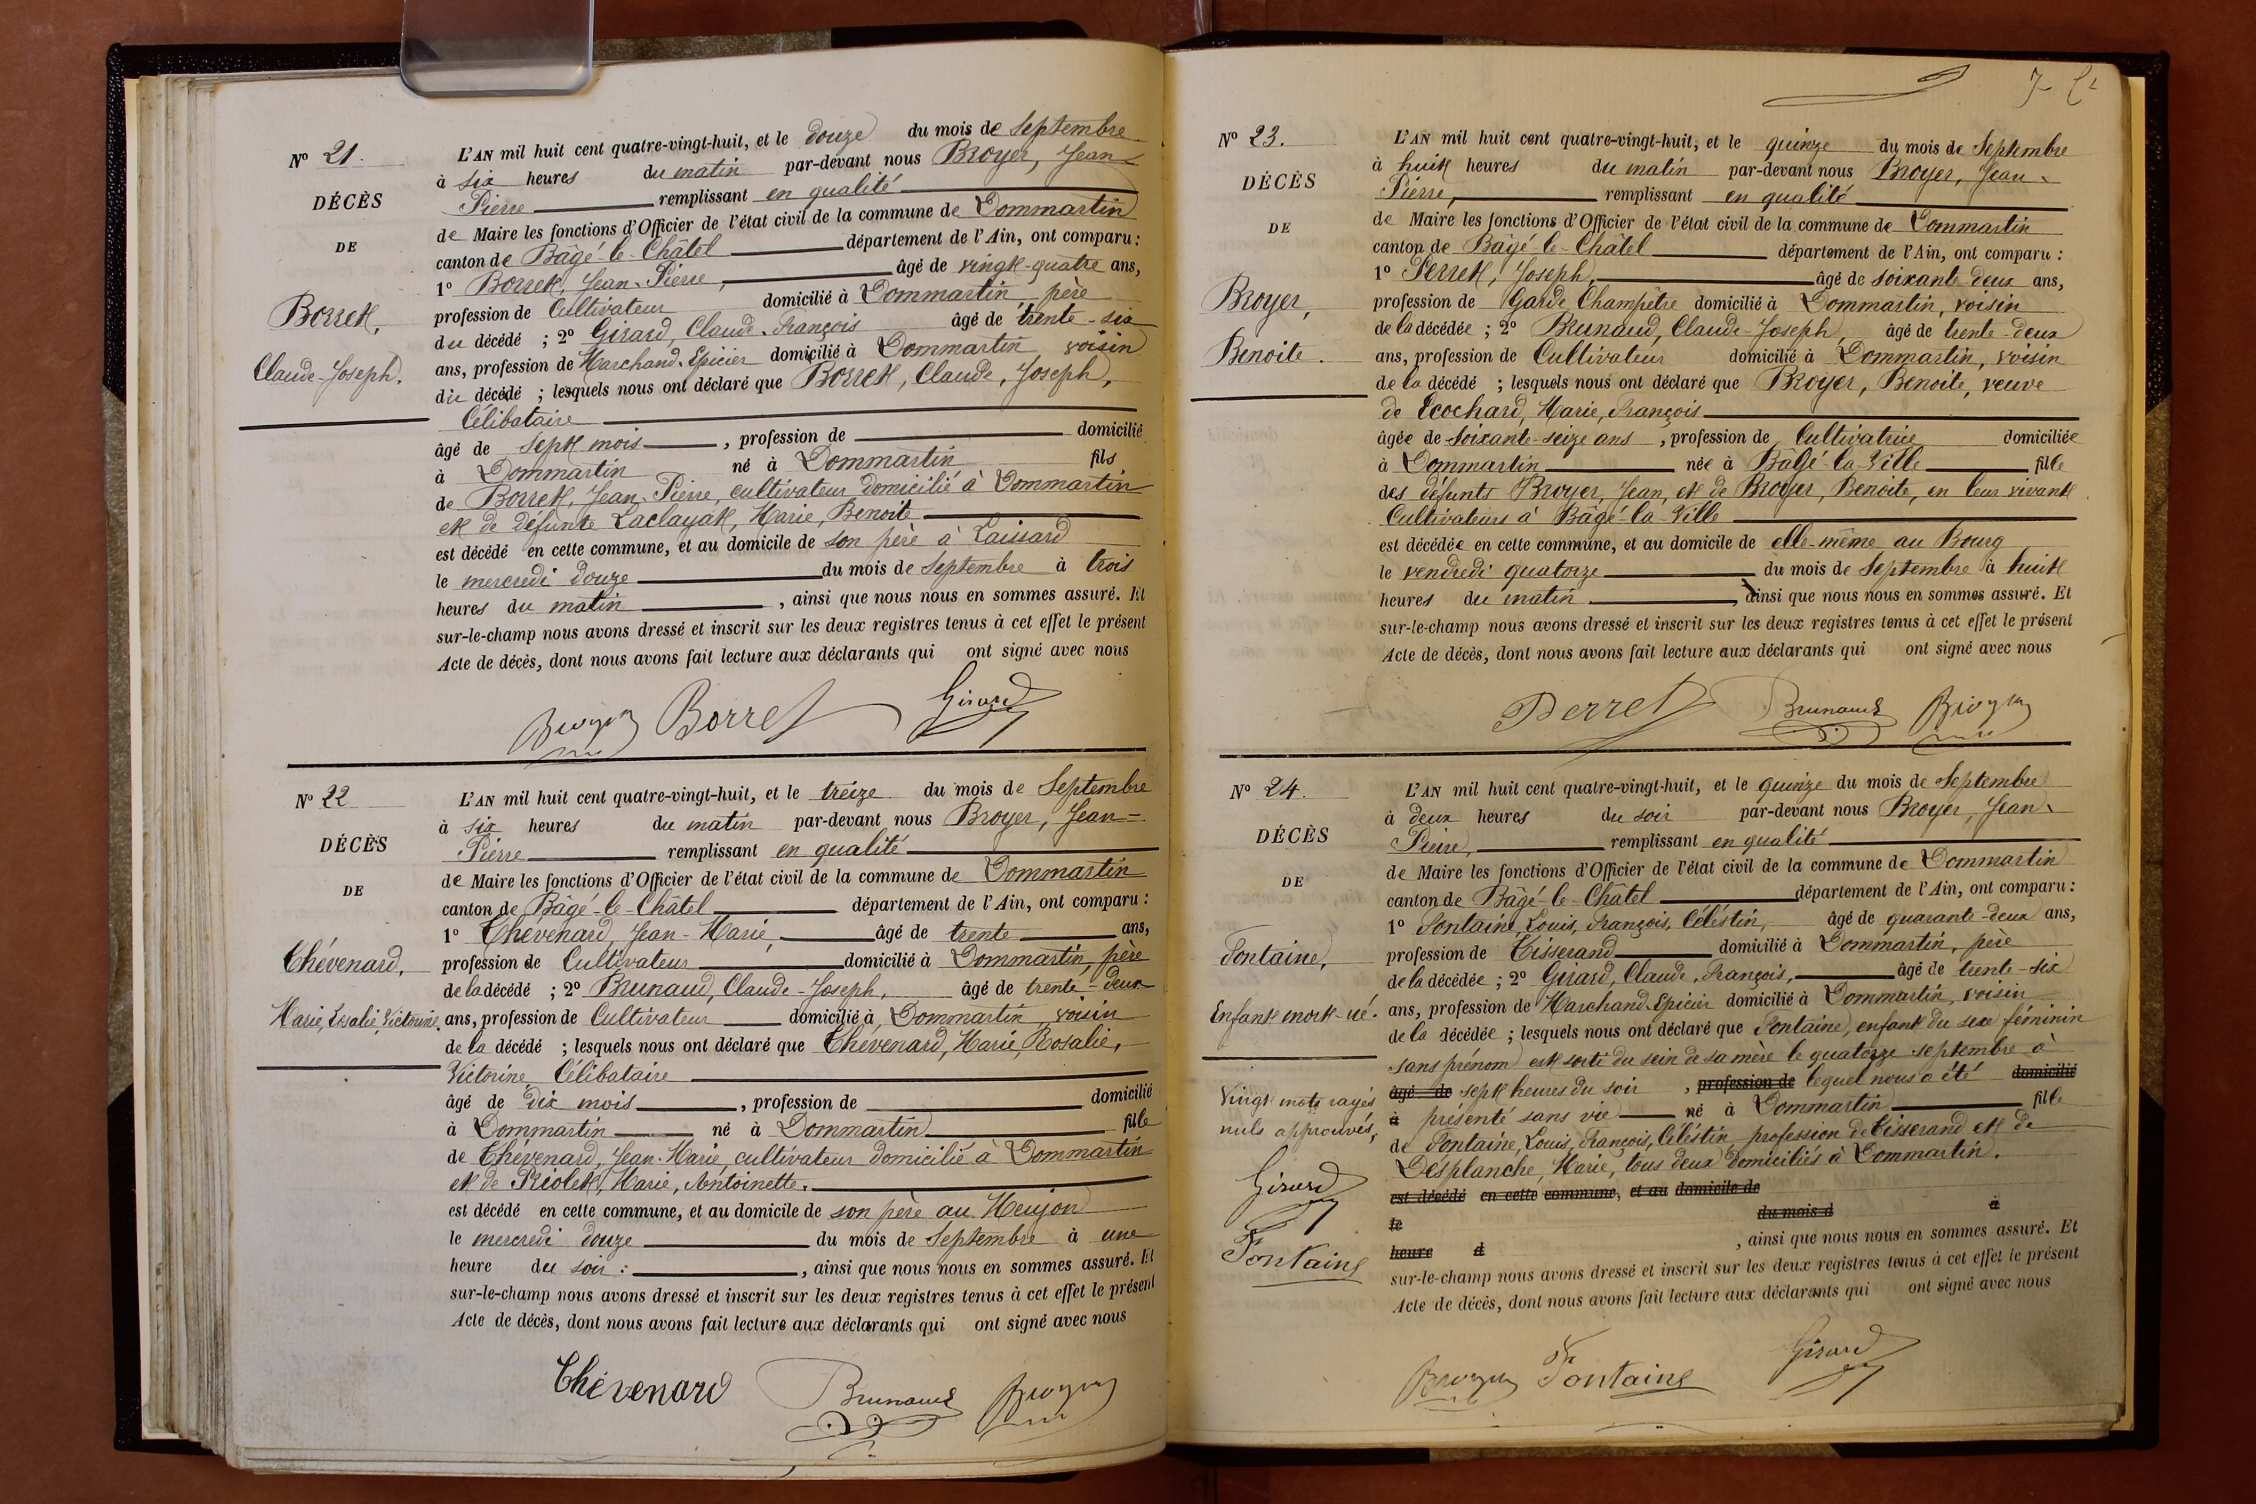 N° 21.
DÉCÈS
DE
Borret,
Claude-Joseph.
L'AN mil huit cent quatre-vingt-huit, et le douze du mois de Septembre
à six heures du matin par-devant nous Broyer, Jean-
Pierre remplissant en qualité
de Maire les fonctions d'Officier de l'état civil de la commune de Dommartin
canton de Bâgé-le-Châtel département de l'Ain, ont comparu :
1° Borret, Jean-Pierre, âgé de vingt-quatre ans,
profession de Cultivateur domicilié à Dommartin, père
du décédé ; 2° Girard, Claude-François âgé de trente-six
ans, profession de Marchand-Epicier domicilié à Dommartin voisin
du décédé ; lesquels nous ont déclaré que Borret, Claude, Joseph,
Célibataire
âgé de sept mois , profession de domicilié
à Dommartin né à Dommartin fils
de Borret, Jean-Pierre, cultivateur domicilié à Dommartin
et de défunte Laclayat, Marie, Benoite
est décédé en cette commune, et au domicile de son père à Laissard
le mercredi douze du mois de Septembre à trois
heures du matin , ainsi que nous nous en sommes assuré. Et
sur-le-champ nous avons dressé et inscrit sur les deux registres tenus à cet effet le présent
Acte de décès, dont nous avons fait lecture aux déclarants qui ont signé avec nous
Broyer Borret Girard
N° 22
DÉCÈS
DE
Chévenard,
Marie, Rosalie, Victorine.
L'AN mil huit cent quatre-vingt-huit, et le treize du mois de Septembre
à six heures du matin par-devant nous Broyer, Jean-
Pierre remplissant en qualité
de Maire les fonctions d'Officier de l'état civil de la commune de Dommartin
canton de Bâgé-le-Châtel département de l'Ain, ont comparu :
1° Chévenard, Jean-Marie, âgé de trente ans,
profession de Cultivateur domicilié à Dommartin, père
de la décédé ; 2° Brunaud, Claude-Joseph, âgé de trente-deux
ans, profession de Cultivateur domicilié à Dommartin voisin
de la décédé ; lesquels nous ont déclaré que Chévenard, Marie, Rosalie,
Victorine, Célibataire
âgé de dix mois , profession de domicilié
à Dommartin né à Dommartin fille
de Chévenard, Jean-Marie, cultivateur domicilié à Dommartin
et de Priolet, Marie, Antoinette.
est décédé en cette commune, et au domicile de son père au Meujon
le mercredi douze du mois de Septembre à une
heure du soir : , ainsi que nous nous en sommes assuré. Et
sur-le-champ nous avons dressé et inscrit sur les deux registres tenus à cet effet le présent
Acte de décès, dont nous avons fait lecture aux déclarants qui ont signé avec nous
Chévenard Brunaud Broyer
N° 23.
DÉCÈS
DE
Broyer,
Benoite.
L'AN mil huit cent quatre-vingt-huit, et le quinze du mois de Septembre
à huit heures du matin par-devant nous Broyer, Jean-
Pierre, remplissant en qualité
de Maire les fonctions d'Officier de l'état civil de la commune de Dommartin
canton de Bâgé-le-Châtel département de l'Ain, ont comparu :
1° Perret, Joseph, âgé de soixante deux ans,
profession de Garde Champêtre domicilié à Dommartin, voisin
de la décédée ; 2° Brunaud, Claude-Joseph, âgé de trente-deux
ans, profession de Cultivateur domicilié à Dommartin, voisin
de la décédé ; lesquels nous ont déclaré que Broyer, Benoite, veuve
de Ecochard, Marie, François
âgée de soixante-seize ans , profession de Cultivatrice domiciliée
à Dommartin née à Bâgé-la-Ville fille
des défunts Broyer, Jean, et de Broyer, Benoite, en leur vivant
Cultivateurs à Bâgé-la-Ville
est décédée en cette commune, et au domicile de elle-même au Bourg
le vendredi quatorze du mois de Septembre à huit
heures du matin , ainsi que nous nous en sommes assuré. Et
sur-le-champ nous avons dressé et inscrit sur les deux registres tenus à cet effet le présent
Acte de décès, dont nous avons fait lecture aux déclarants qui ont signé avec nous
Perret Brunaud Broyer
N° 24.
DÉCÈS
DE
Fontaine,
Enfant mort-né.
Vingt mots rayés
nuls approuvés,
Girard
Fontaine
L'AN mil huit cent quatre-vingt-huit, et le quinze du mois de Septembre
à deux heures du soir par-devant nous Broyer, Jean-
Pierre, remplissant en qualité
de Maire les fonctions d'Officier de l'état civil de la commune de Dommartin
canton de Bâgé-le-Châtel département de l'Ain, ont comparu :
1° Fontaine, Louis, François, Célestin, âgé de quarante-deux ans,
profession de Tisserand domicilié à Dommartin, père
de la décédée ; 2° Girard, Claude, François, âgé de trente-six
ans, profession de Marchand-Epicier domicilié à Dommartin, voisin
de la décédée ; lesquels nous ont déclaré que Fontaine, enfant du sexe féminin
sans prénom est sorti du sein de sa mère le quatorze septembre à
âgé de sept heures du soir , profession de lequel nous a été domicilié
à présenté sans vie né à Dommartin fille
de Fontaine, Louis, François, Célestin profession de Tisserand et de
Desplanche, Marie, tous deux domiciliés à Dommartin.
est décédé en cette commune, et au domicile de
le du mois d à
heure d , ainsi que nous nous en sommes assuré. Et
sur-le-champ nous avons dressé et inscrit sur les deux registres tenus à cet effet le présent
Acte de décès, dont nous avons fait lecture aux déclarants qui ont signé avec nous
Broyer Fontaine Girard